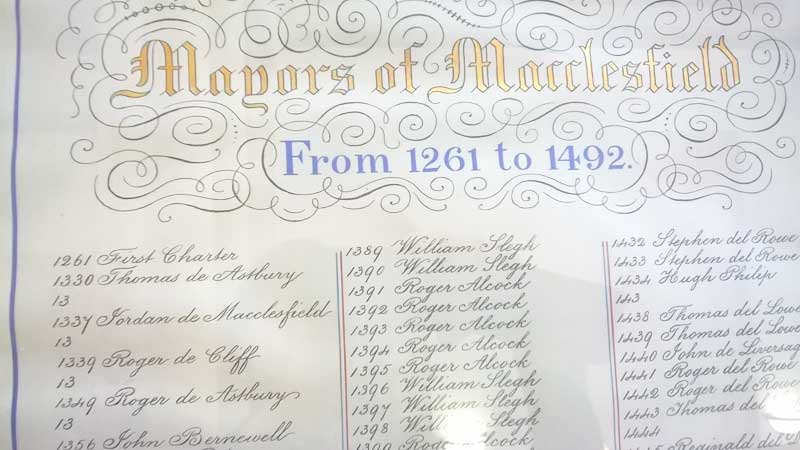 Mayors of Macclesfield
From 1261 to 1492.
1261 First Charter
1330 Thomas de Astbury
13
1337 Jordan de Macclesfield
13
1339 Roger de Cliff
13
1349 Roger de Astbury
13
1356 John Bernewell
1389 William Slegh
1390 William Slegh
1391 Roger Alcock
1392 Roger Alcock
1393 Roger Alcock
1394 Roger Alcock
1395 Roger Alcock
1396 William Slegh
1397 William Slegh
1398 William Slegh
1399 Roger Alcock
1432 Stephen del Rowe
1433 Stephen del Rowe
1434 Hugh Philip
143
1438 Thomas del Lowe
1439 Thomas del Lowe
1440 John de Liversag
1441 Roger del Rowe
1442 Roger del Rowe
1443 Thomas del
1444
Reginald del